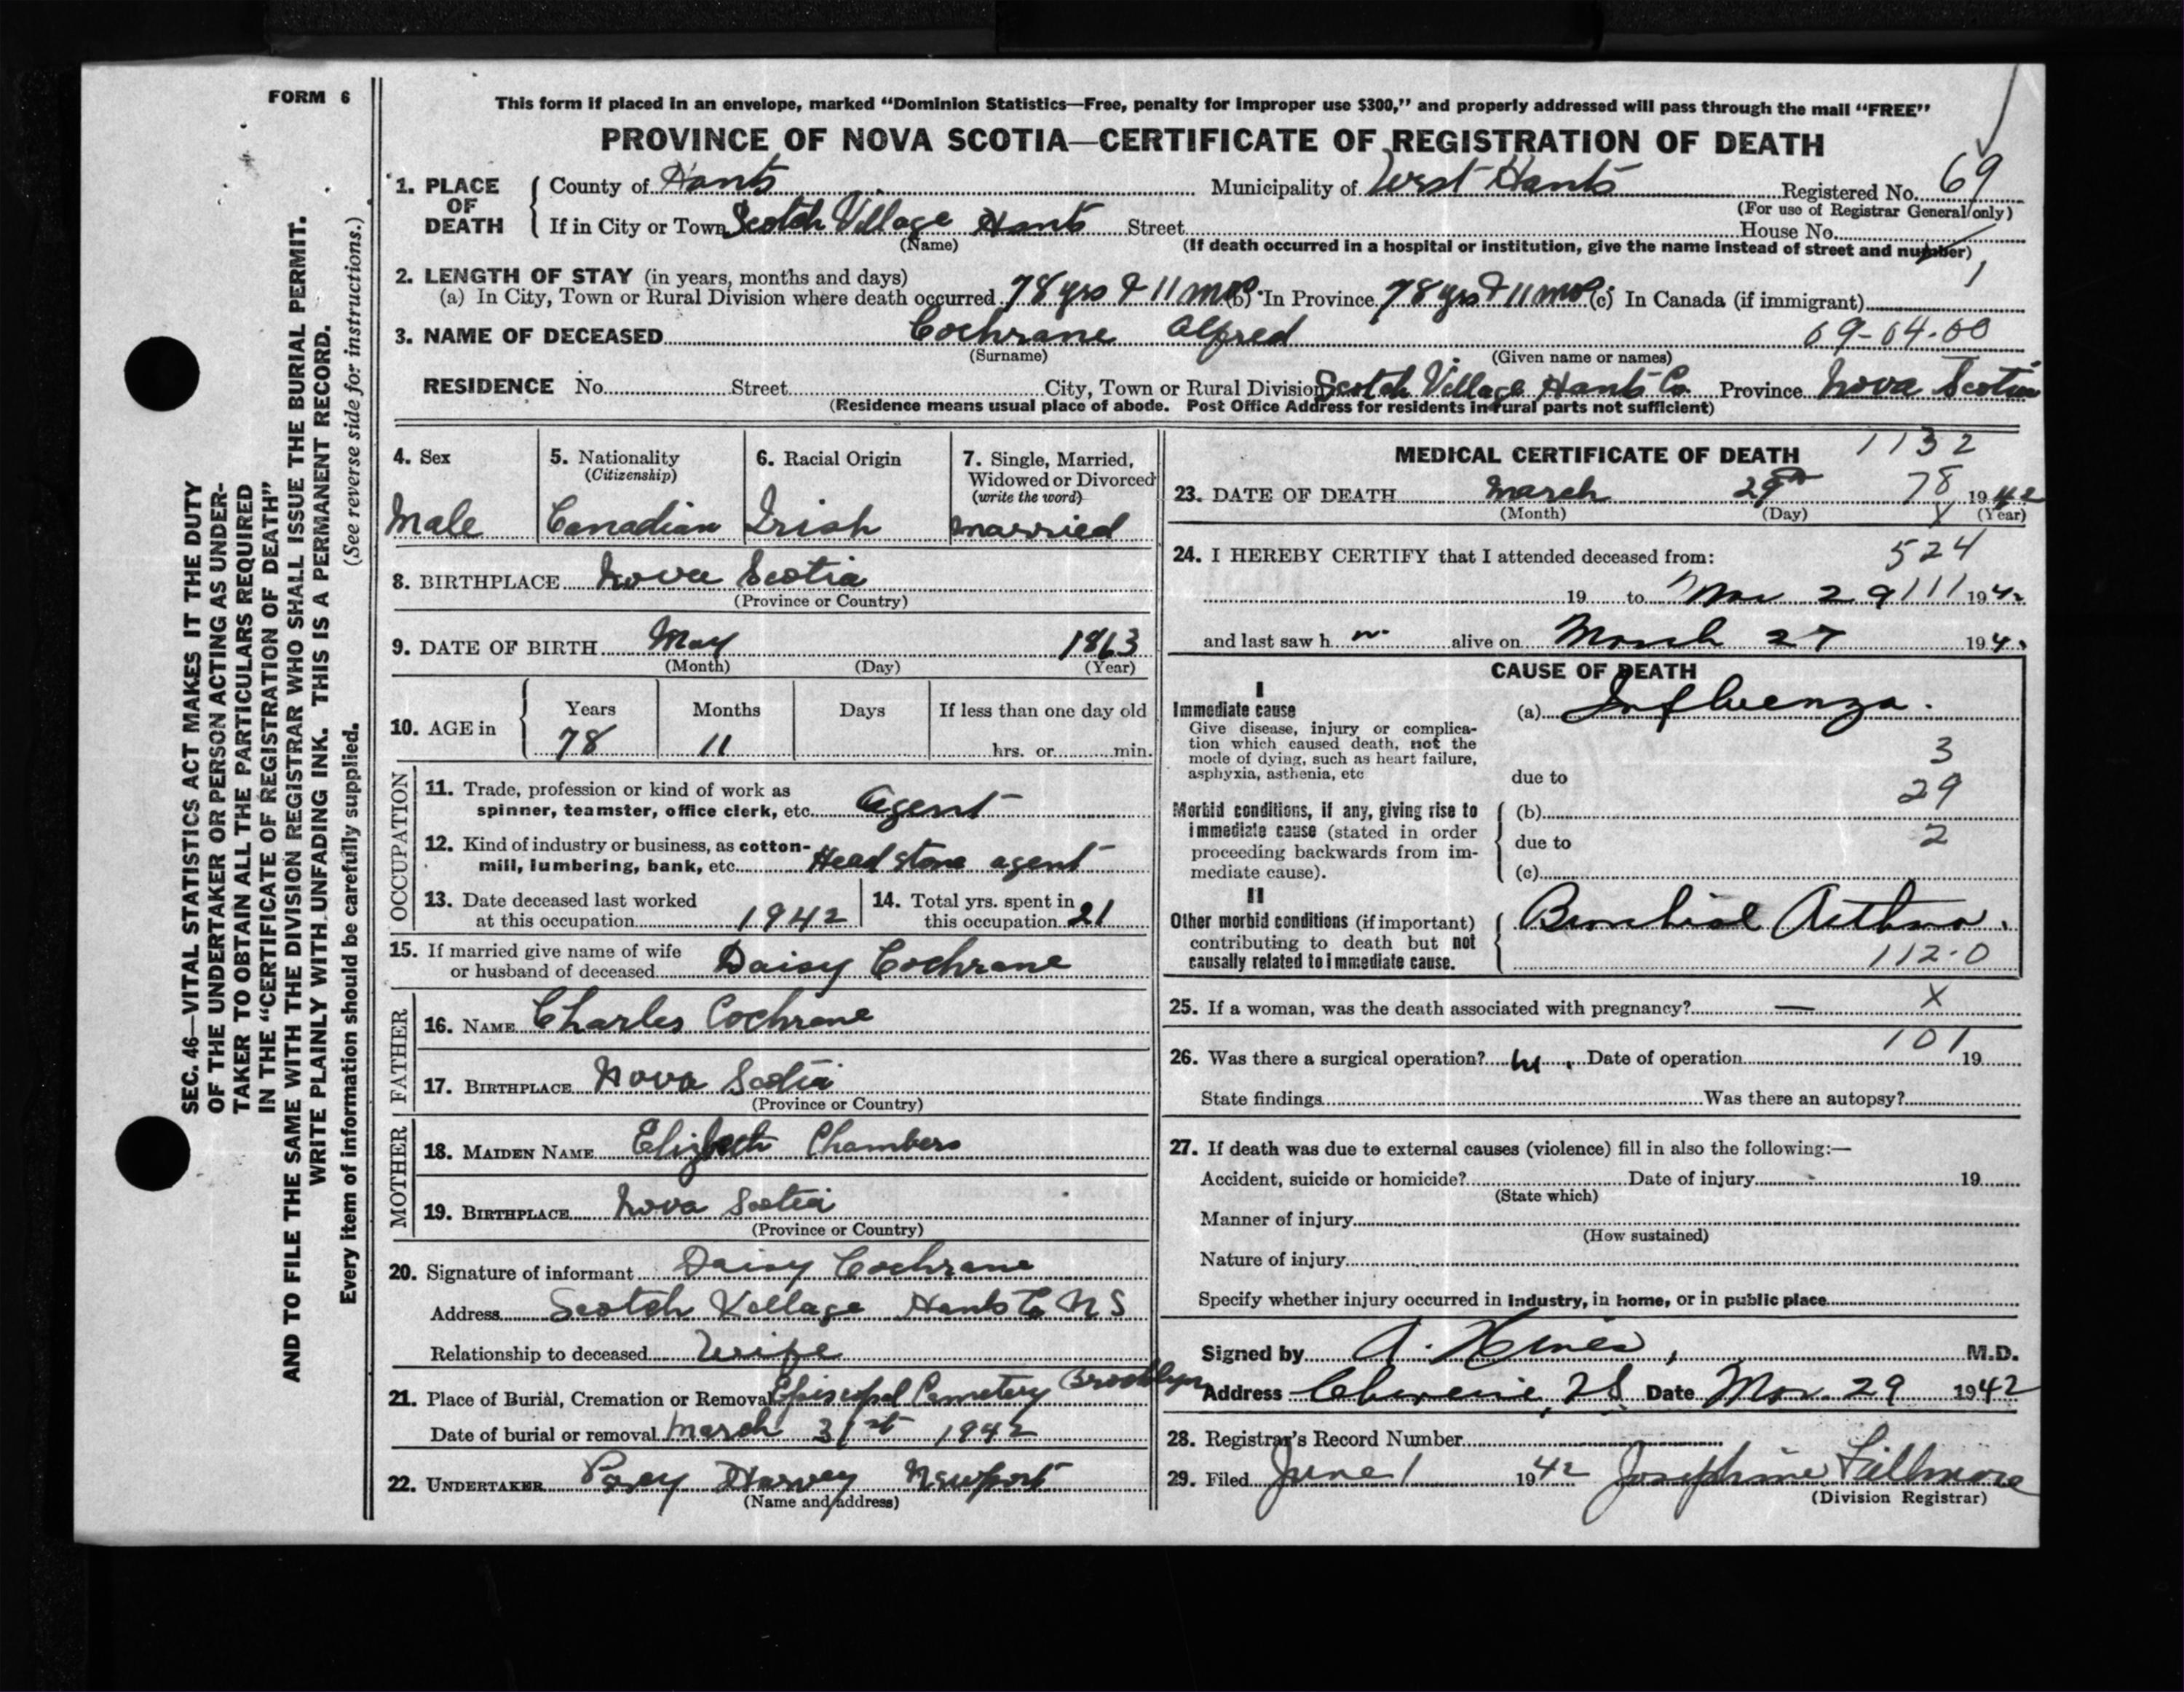 FORM 6
SEC. 46—VITAL STATISTICS ACT MAKES IT THE DUTY
OF THE UNDERTAKER OR PERSON ACTING AS UNDER-
TAKER TO OBTAIN ALL THE PARTICULARS REQUIRED
IN THE "CERTIFICATE OF REGISTRATION OF DEATH"
AND TO FILE THE SAME WITH THE DIVISION REGISTRAR WHO SHALL ISSUE THE BURIAL PERMIT.
WRITE PLAINLY WITH UNFADING INK. THIS IS A PERMANENT RECORD.
Every item of information should be carefully supplied. (See reverse side for instructions.)
This form if placed in an envelope, marked "Dominion Statistics—Free, penalty for improper use $300," and properly addressed will pass through the mail "FREE"
PROVINCE OF NOVA SCOTIA—CERTIFICATE OF REGISTRATION OF DEATH
1. PLACE OF DEATH County of Hants Municipality of West Hants Registered No. 69
(For use of Registrar General only)
If in City or Town Scotch Village Hants Street House No.
(Name) (If death occurred in a hospital or institution, give the name instead of street and number)
1
2. LENGTH OF STAY (in years, months and days)
(a) In City, Town or Rural Division where death occurred 78 yrs & 11 mo (b) In Province 78 yrs & 11 mo (c) In Canada (if immigrant)
3. NAME OF DECEASED Cochrane Alfred 69-04-00
(Surname) (Given name or names)
RESIDENCE No. Street City, Town or Rural Division Scotch Village Hants Co Province Nova Scotia
(Residence means usual place of abode. Post Office Address for residents in rural parts not sufficient)
4. Sex
Male
5. Nationality
(Citizenship)
Canadian
6. Racial Origin
Irish
7. Single, Married,
Widowed or Divorced
(write the word)
Married
8. BIRTHPLACE Nova Scotia
(Province or Country)
9. DATE OF BIRTH May 1863
(Month) (Day) (Year)
10. AGE in Years Months Days If less than one day old
78 11 hrs. or min.
OCCUPATION
11. Trade, profession or kind of work as
spinner, teamster, office clerk, etc. Agent
12. Kind of industry or business, as cotton-
mill, lumbering, bank, etc. Head stone agent
13. Date deceased last worked
at this occupation 1942
14. Total yrs. spent in
this occupation 21
15. If married give name of wife
or husband of deceased Daisy Cochrane
FATHER
16. NAME Charles Cochrane
17. BIRTHPLACE Nova Scotia
(Province or Country)
MOTHER
18. MAIDEN NAME Elizbeth Chambers
19. BIRTHPLACE Nova Scotia
(Province or Country)
20. Signature of informant Daisy Cochrane
Address Scotch Village Hants Co N S
Relationship to deceased Wife
21. Place of Burial, Cremation or Removal Episcopal Cemetery Brooklyn
Date of burial or removal March 31st 1942
22. UNDERTAKER Percy Harvey Newport
(Name and address)
MEDICAL CERTIFICATE OF DEATH 1132
23. DATE OF DEATH March 29th 78 1942
(Month) (Day) X (Year)
24. I HEREBY CERTIFY that I attended deceased from: 524
19 to Mar 29 111 1942
and last saw h m alive on March 27 194
CAUSE OF DEATH
I
Immediate cause
Give disease, injury or complica-
tion which caused death, not the
mode of dying, such as heart failure,
asphyxia, asthenia, etc
(a) Influenza.
3
due to
29
Morbid conditions, if any, giving rise to
immediate cause (stated in order
proceeding backwards from im-
mediate cause).
(b)
due to 2
(c)
II
Other morbid conditions (if important)
contributing to death but not
causally related to immediate cause.
Bronchial Asthma.
112-0
25. If a woman, was the death associated with pregnancy? — X
101
26. Was there a surgical operation? Date of operation 19
State findings Was there an autopsy?
27. If death was due to external causes (violence) fill in also the following:—
Accident, suicide or homicide? Date of injury 19
(State which)
Manner of injury
(How sustained)
Nature of injury
Specify whether injury occurred in industry, in home, or in public place
Signed by A. M.D.
Address Date Mar. 29 1942
28. Registrar's Record Number
29. Filed June 1 1942 Josephine Fillmore
(Division Registrar)